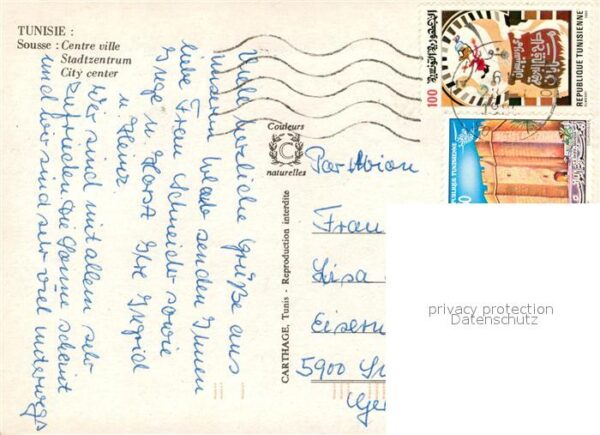 TUNISIE :
Sousse : Centre ville
Stadtzentrum
City center
Viele herzliche Grüße aus
unserem senden Ihnen
liebe Frau Schneider sowie
Inge u. Horst Ihre Ingrid
u. Heinz
Wir sind mit allem sehr
zufrieden die Sonne scheint
und wir sind sehr viel unterwegs
Couleurs
C
naturelles
CARTHAGE, Tunis - Reproduction interdite
Par Avion
Frau
Lisa
Eisern
5900 Si
Ger
100
الجمهورية التونسية
REPUBLIQUE TUNISIENNE
REPUBLIQUE TUNISIENNE
privacy protection
Datenschutz